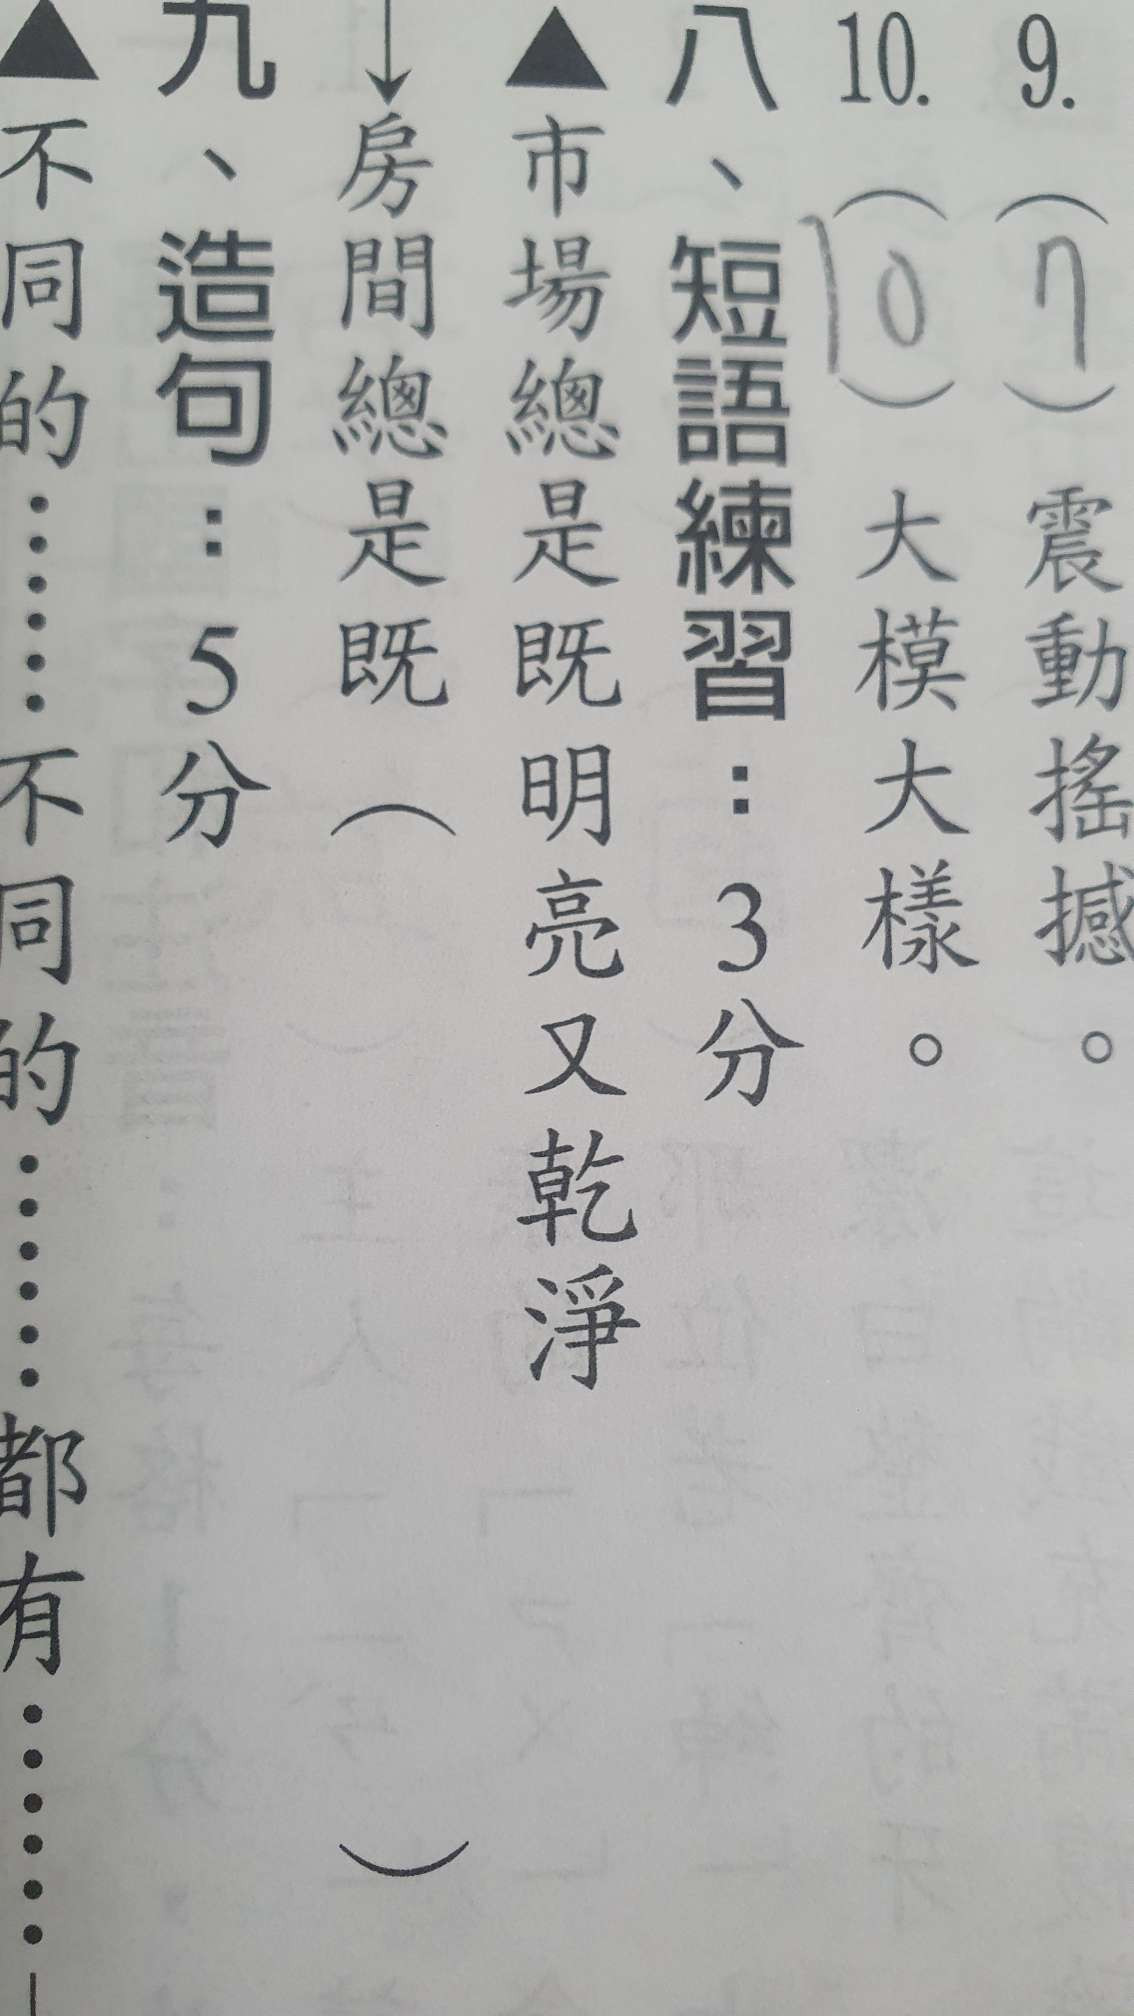 9.(7)震動搖撼。
10.(10)大模大樣。
八、短語練習：3分
▲市場總是既明亮又乾淨
↓房間總是既（　）
九、造句：5分
▲不同的……不同的……都有……